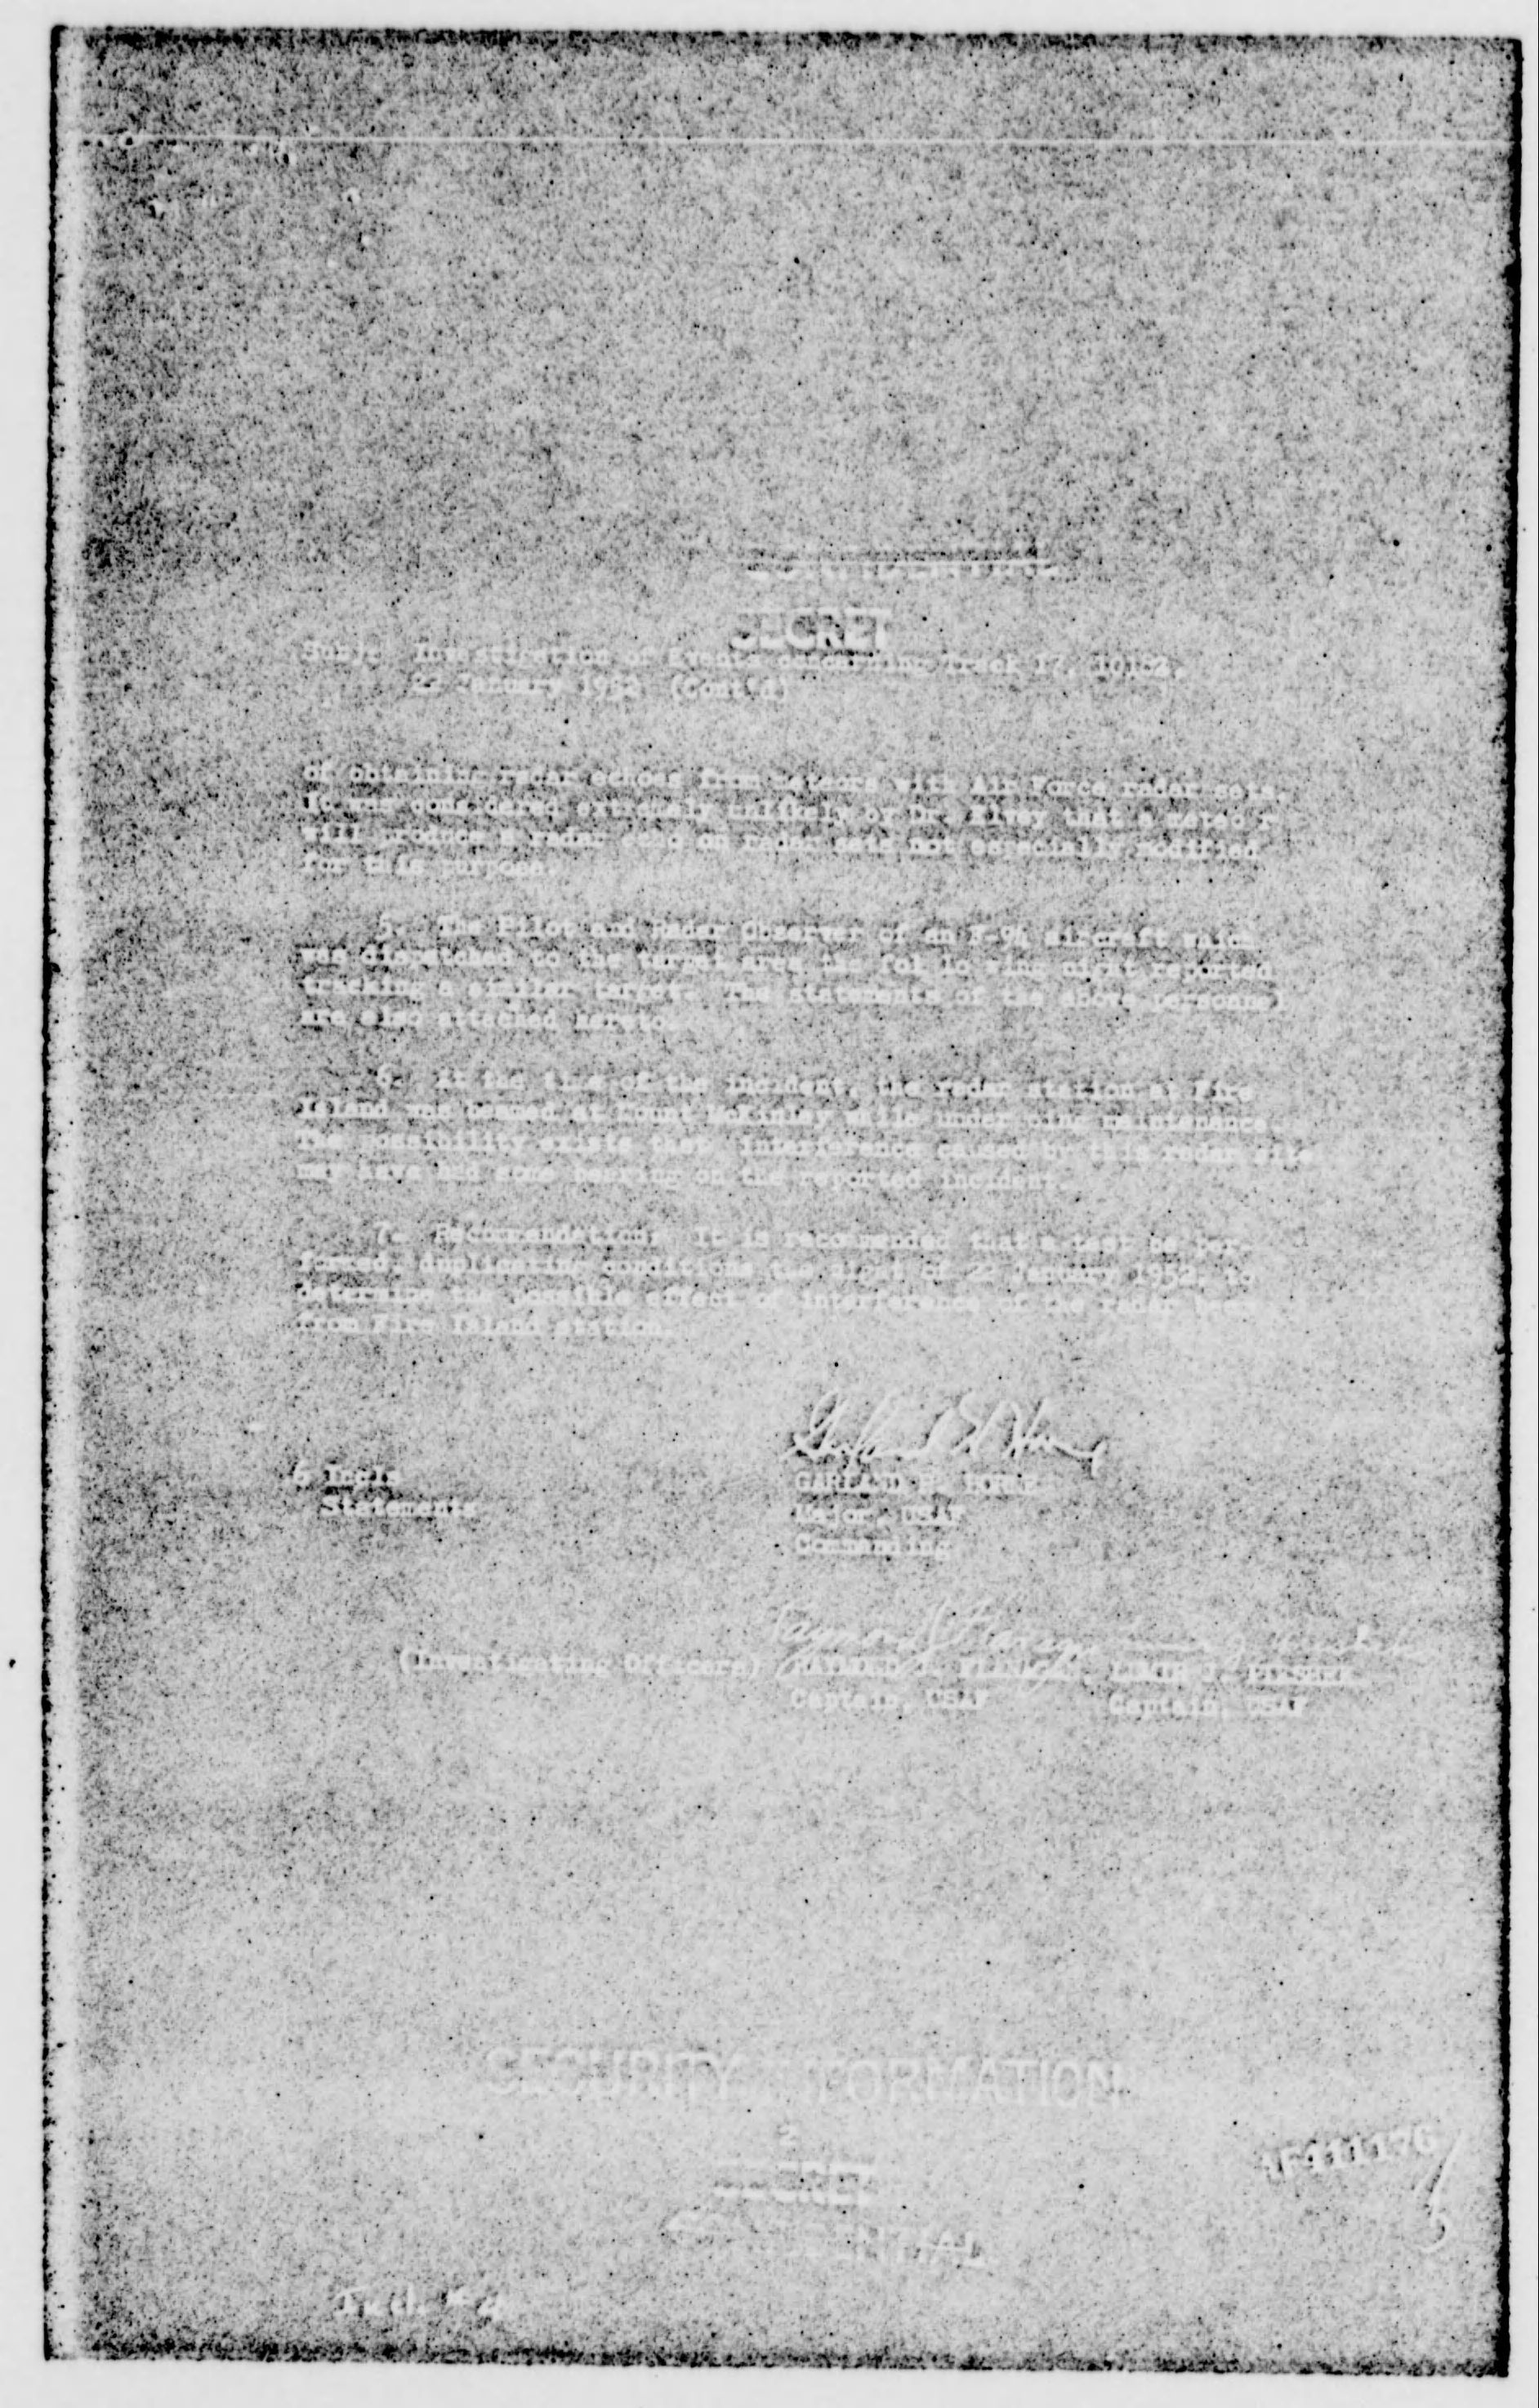 CONFIDENTIAL
SECRET
Subj: Investigation of Events concerning Track 17, 1010Z,
22 January 1952 (Cont'd)
of obtaining radar echoes from meteors with Air Force radar sets.
It was considered extremely unlikely by Dr. Elvey that a meteor
will produce a radar echo on radar sets not especially modified
for this purpose.
5. The Pilot and Radar Observer of an F-94 aircraft which
was dispatched to the target area
tracking a similar target. The statements of the above personnel
are also attached hereto.
6. At the time of the incident, the radar station at Fire
Island was beamed at Mount McKinley while undergoing maintenance.
The possibility exists that interference caused by this radar site
may have had some bearing on the reported incident.
7. Recommendation: It is recommended that a test be per-
formed, duplicating conditions the night of 22 January 1952, to
determine the possible effect of interference of the radar
from Fire Island station.
6 Incls
Statements
GARLAND
Major, USAF
Commanding
(Investigating Officers) RAYMOND J.
Captain, USAF Captain, USAF
SECURITY INFORMATION
2
SECRET
CONFIDENTIAL